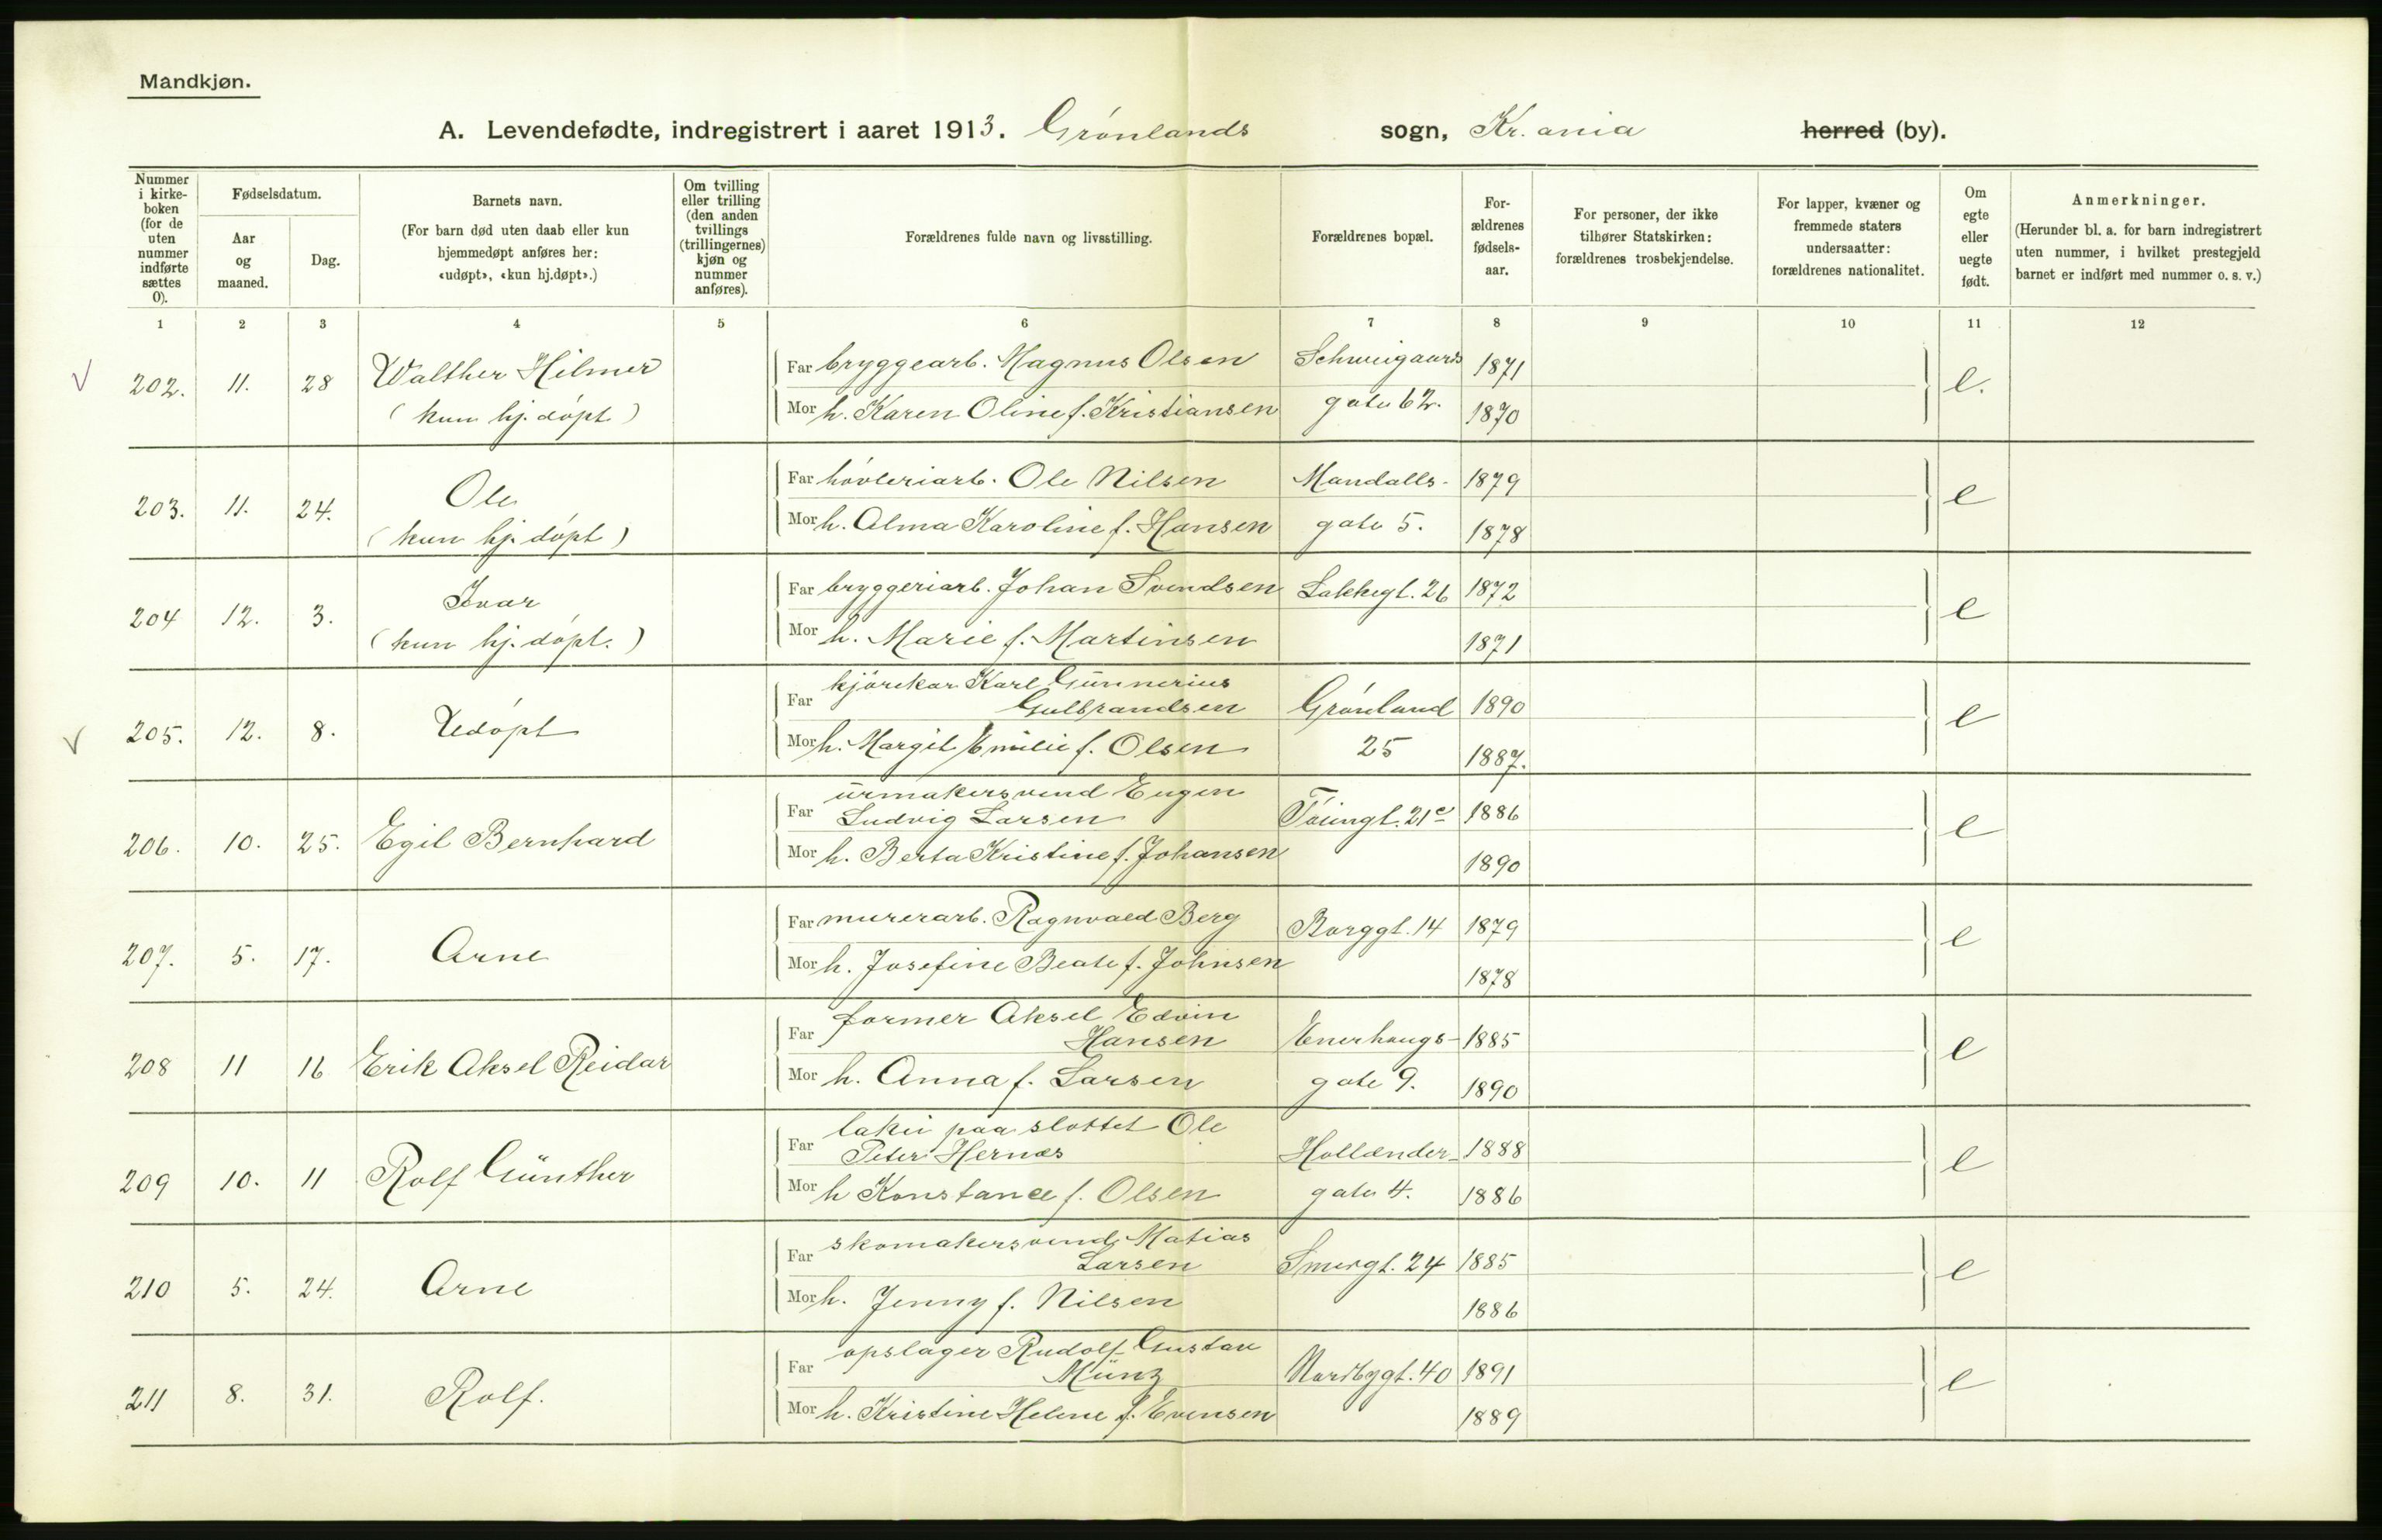 Mandkjøn.
A. Levendefødte, indregistrert i aaret 1913. Grønlands sogn, Kr.ania herred (by).
Nummer i kirkeboken (for de uten nummer indførte sættes 0).
Fødselsdatum.
Aar og maaned.
Dag.
Barnets navn.
(For barn død uten daab eller kun hjemmedøpt anføres her: «udøpt», «kun hj.døpt».)
Om tvilling eller trilling (den anden tvillings (trillingernes) kjøn og nummer anføres).
Forældrenes fulde navn og livsstilling.
Forældrenes bopæl.
Forældrenes fødselsaar.
For personer, der ikke tilhører Statskirken: forældrenes trosbekjendelse.
For lapper, kvæner og fremmede staters undersaatter: forældrenes nationalitet.
Om egte eller uegte født.
Anmerkninger.
(Herunder bl. a. for barn indregistrert uten nummer, i hvilket prestegjeld barnet er indført med nummer o. s. v.)
1 2 3 4 5 6 7 8 9 10 11 12
V 202. 11. 28 Walther Hilmer Far bryggearb. Magnus Olsen Schweigaards 1871 e.
(kun hj. døpt) Mor h. Karen Oline f. Kristiansen gate 62. 1870
203. 11. 24. Ole Far høvleriarb. Ole Nilsen Mandalls- 1879 e
(kun hj. døpt) Mor h. Alma Karoline f. Hansen gate 5. 1878
204 12. 3. Ivar Far bryggeriarb. Johan Svendsen Lakkegt. 26 1872 e
(kun hj. døpt.) Mor h. Marie f. Martinsen 1871
V 205. 12. 8. Udøpt Far kjørekar Karl Gunnerius
Gulbrandsen Grønland 1890 e
Mor h. Margit Emilie f. Olsen 25 1887.
206. 10. 25. Egil Bernhard Far urmakersvend Eugen
Ludvig Larsen Tøiengt. 21c 1886 e
Mor h. Berta Kristine f. Johansen 1890
207. 5. 17. Arne Far murerarb. Ragnvald Berg Borggt. 14 1879 e
Mor h. Josefine Beate f. Johnsen 1878
208 11 16 Erik Aksel Reidar Far former Aksel Edvin
Hansen Enerhaugs- 1885 e
Mor h. Anna f. Larsen gate 9. 1890
209 10. 11 Rolf Günther Far lakei paa slottet Ole
Peter Hernæs Hollænder- 1888 e
Mor h Konstance f. Olsen gate 4. 1886
210 5. 24. Arne Far skomakersvend Matias
Larsen Smedgt. 24 1885 e
Mor h. Jenny f. Nilsen 1886
211 8. 31. Rolf. Far opslager Rudolf Gustav
Münz Nordbygt. 40 1891 e
Mor h. Kristine Helene f. Evensen 1889